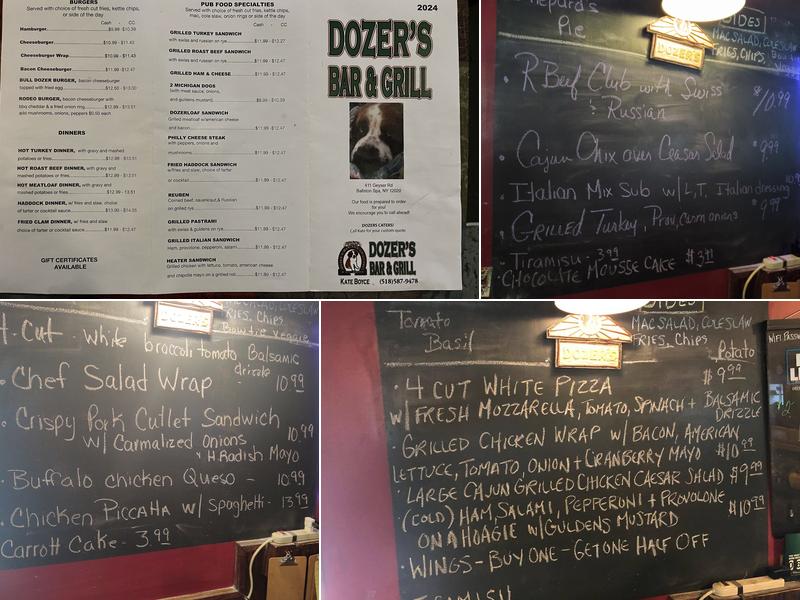 BURGERS
Served with choice of fresh cut fries, kettle chips,
or side of the day
Cash - CC
Hamburger
Cheeseburger
Cheeseburger Wrap
Bacon Cheeseburger
BULL DOZER BURGER, bacon cheeseburger
topped with fried egg
RODEO BURGER, bacon cheeseburger with
bbq cheddar & a fried onion ring
add mushrooms, onions, peppers $0.50 each
DINNERS
HOT TURKEY DINNER, with gravy and mashed
potatoes or fries
HOT ROAST BEEF DINNER, with gravy and
mashed potatoes or fries
HOT MEATLOAF DINNER, with gravy and
mashed potatoes or fries
HADDOCK DINNER, w/ fries and slaw, choice
of tarter or cocktail sauce
FRIED CLAM DINNER, w/ fries and slaw
choice of tarter or cocktail sauce
GIFT CERTIFICATES
AVAILABLE
PUB FOOD SPECIALTIES
Served with choice of fresh cut fries, kettle chips,
mac, cole slaw, onion rings or side of the day
Cash - CC
GRILLED TURKEY SANDWICH
with swiss and russian on rye
GRILLED ROAST BEEF SANDWICH
with swiss and russian on rye $11.99 - $12.47
GRILLED HAM & CHEESE $11.99 - $12.47
2 MICHIGAN DOGS
(with meat sauce, onions,
and guldens mustard)
DOZERLOAF SANDWICH
Grilled meatloaf w/american cheese
and bacon $11.99 - $12.47
PHILLY CHEESE STEAK
with peppers, onions and
mushrooms $11.99 - $12.47
FRIED HADDOCK SANDWICH
w/fries and slaw, choice of tarter
or cocktail $11.99 - $12.47
REUBEN
Corned beef, sauerkraut & Russian
on grilled rye $11.99 - $12.47
GRILLED PASTRAMI
with swiss & guldens on rye $11.99 - $12.47
GRILLED ITALIAN SANDWICH
Ham, provolone, pepperoni, salami $11.99 - $12.47
HEATER SANDWICH
Grilled chicken with lettuce, tomato, american cheese
and chipotle mayo on a grilled roll $11.99 - $12.47
2024
DOZER'S
BAR & GRILL
411 Geyser Rd
Ballston Spa, NY 12020
Our food is prepared to order
for you!
We encourage you to call ahead!
DOZERS CATERS!
Call Kate for your custom quote
DOZER'S
BAR & GRILL
KATE BOYCE (518)587-9478
Shepard's
Pie
SIDES
MAC SALAD, COLESLAW
FRIES, CHIPS,
DOZER'S
• R Beef Club with Swiss
& Russian $10.99
• Cajun Chix over Ceasar Salad $9.99
• Italian Mix Sub w/ L,T, Italian dressing
• Grilled Turkey, Prov, Carm onions 9.99
- Tiramisu - 3.99
• Chocolate Mousse Cake $3.99
DOZER'S
FRIES, Chips
Bowtie Veggie
4 Cut white broccoli tomato Balsamic
drizzle 10.99
• Chef Salad Wrap
• Crispy Pork Cutlet Sandwich
w/ Carmalized Onions 10.99
& H. Radish Mayo
• Buffalo chicken Queso - 10.99
• Chicken Piccatta w/ Spaghetti - 13.99
Carrott Cake - 3.99
Tomato
Basil
DOZER'S
SIDES
MAC SALAD, COLESLAW
FRIES, Chips
Potato
WIFI PASS
• 4 CUT WHITE PIZZA $9.99
w/ FRESH MOZZARELLA, TOMATO, SPINACH + BALSAMIC
DRIZZLE
GRILLED CHICKEN WRAP W/ BACON, AMERICAN
LETTUCE, TOMATO, ONION + CRANBERRY MAYO $10.99
• LARGE CAJUN GRILLED CHICKEN CAESAR SALAD $9.99
(COLD) HAM, SALAMI, PEPPERONI + PROVOLONE
ON A HOAGIE W/ GULDENS MUSTARD $10.99
• WINGS - BUY ONE - GET ONE HALF OFF
TIRAMISU